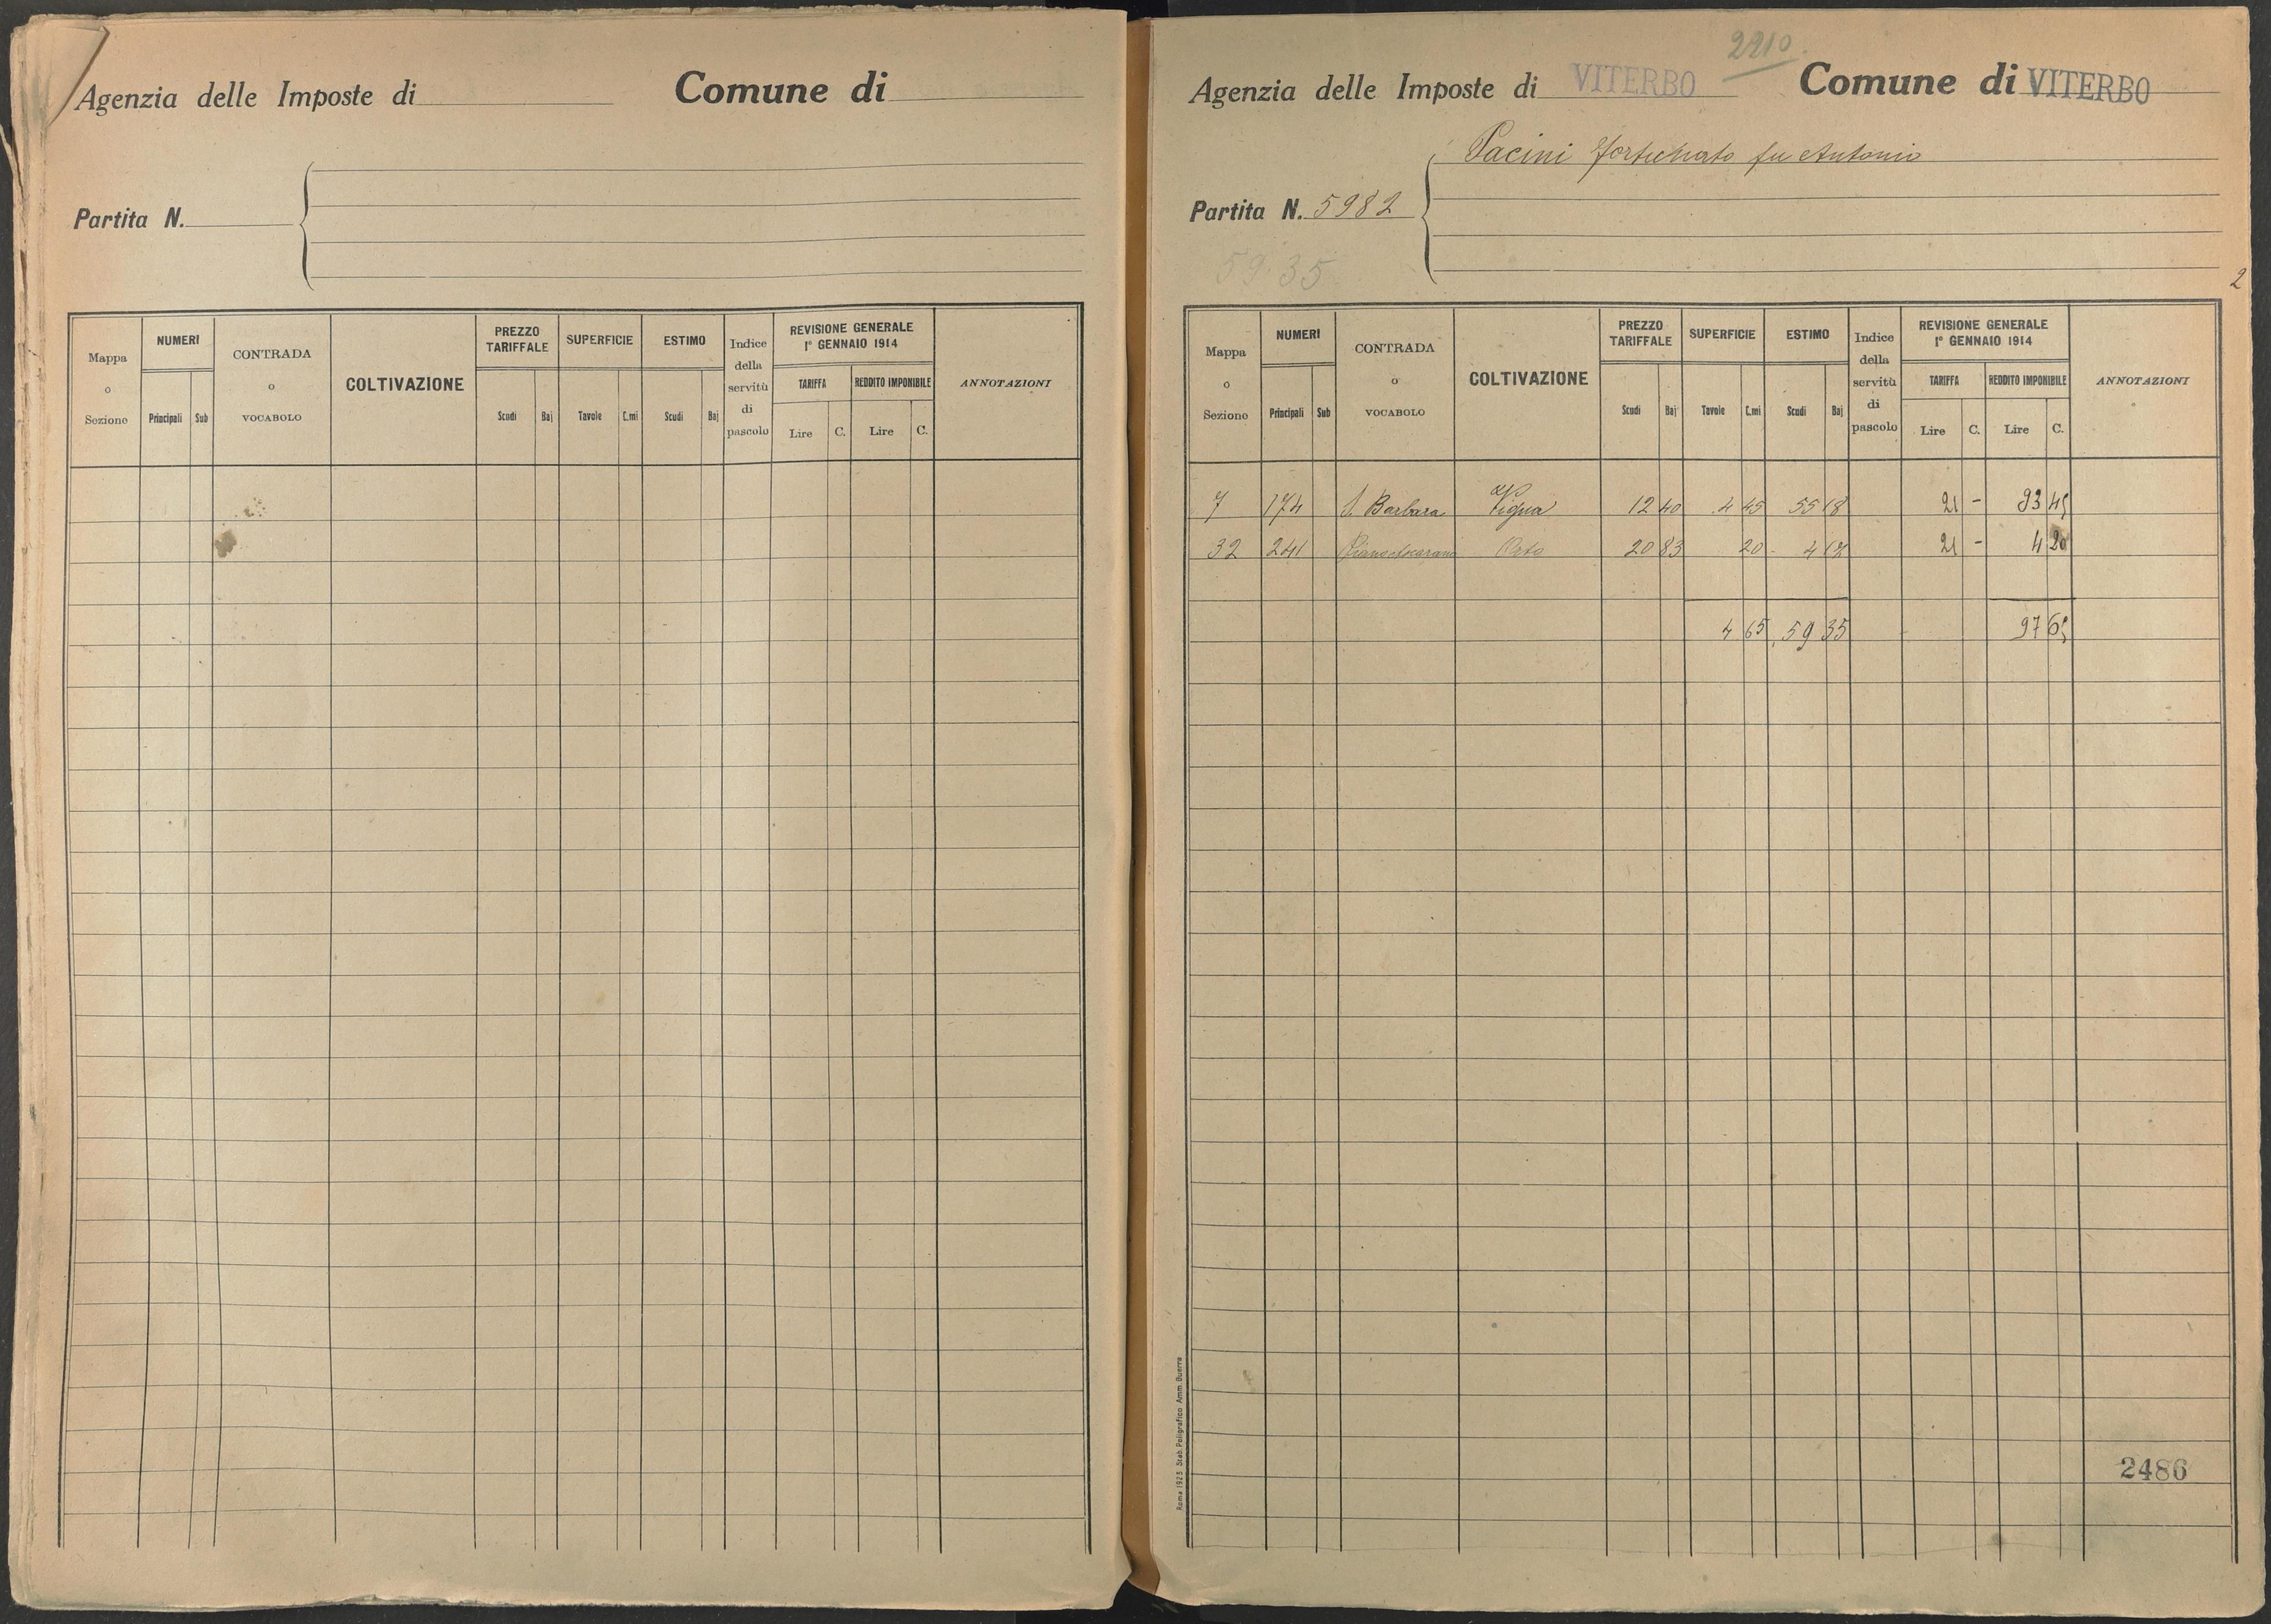 Agenzia delle Imposte di Comune di
Partita N.
Mappa o Sezione NUMERI Principali Sub CONTRADA o VOCABOLO COLTIVAZIONE PREZZO TARIFFALE Scudi Baj SUPERFICIE Tavole C.mi ESTIMO Scudi Baj Indice della servitù di pascolo REVISIONE GENERALE 1° GENNAIO 1914 TARIFFA Lire C. REDDITO IMPONIBILE Lire C. ANNOTAZIONI
2210
Agenzia delle Imposte di VITERBO Comune di VITERBO
Pacini Fortunato fu Antonio
Partita N. 5982
59.35
2
Mappa o Sezione NUMERI Principali Sub CONTRADA o VOCABOLO COLTIVAZIONE PREZZO TARIFFALE Scudi Baj SUPERFICIE Tavole C.mi ESTIMO Scudi Baj Indice della servitù di pascolo REVISIONE GENERALE 1° GENNAIO 1914 TARIFFA Lire C. REDDITO IMPONIBILE Lire C. ANNOTAZIONI
7 174 S. Barbara Vigna 12 40 4 45 55 18 21 - 93 45
32 241 Orto 20 83 20 4 17 21 - 4 20
4 65 59 35 97 65
2486
Roma 1925 Stab. Poligrafico Amm. Guerra